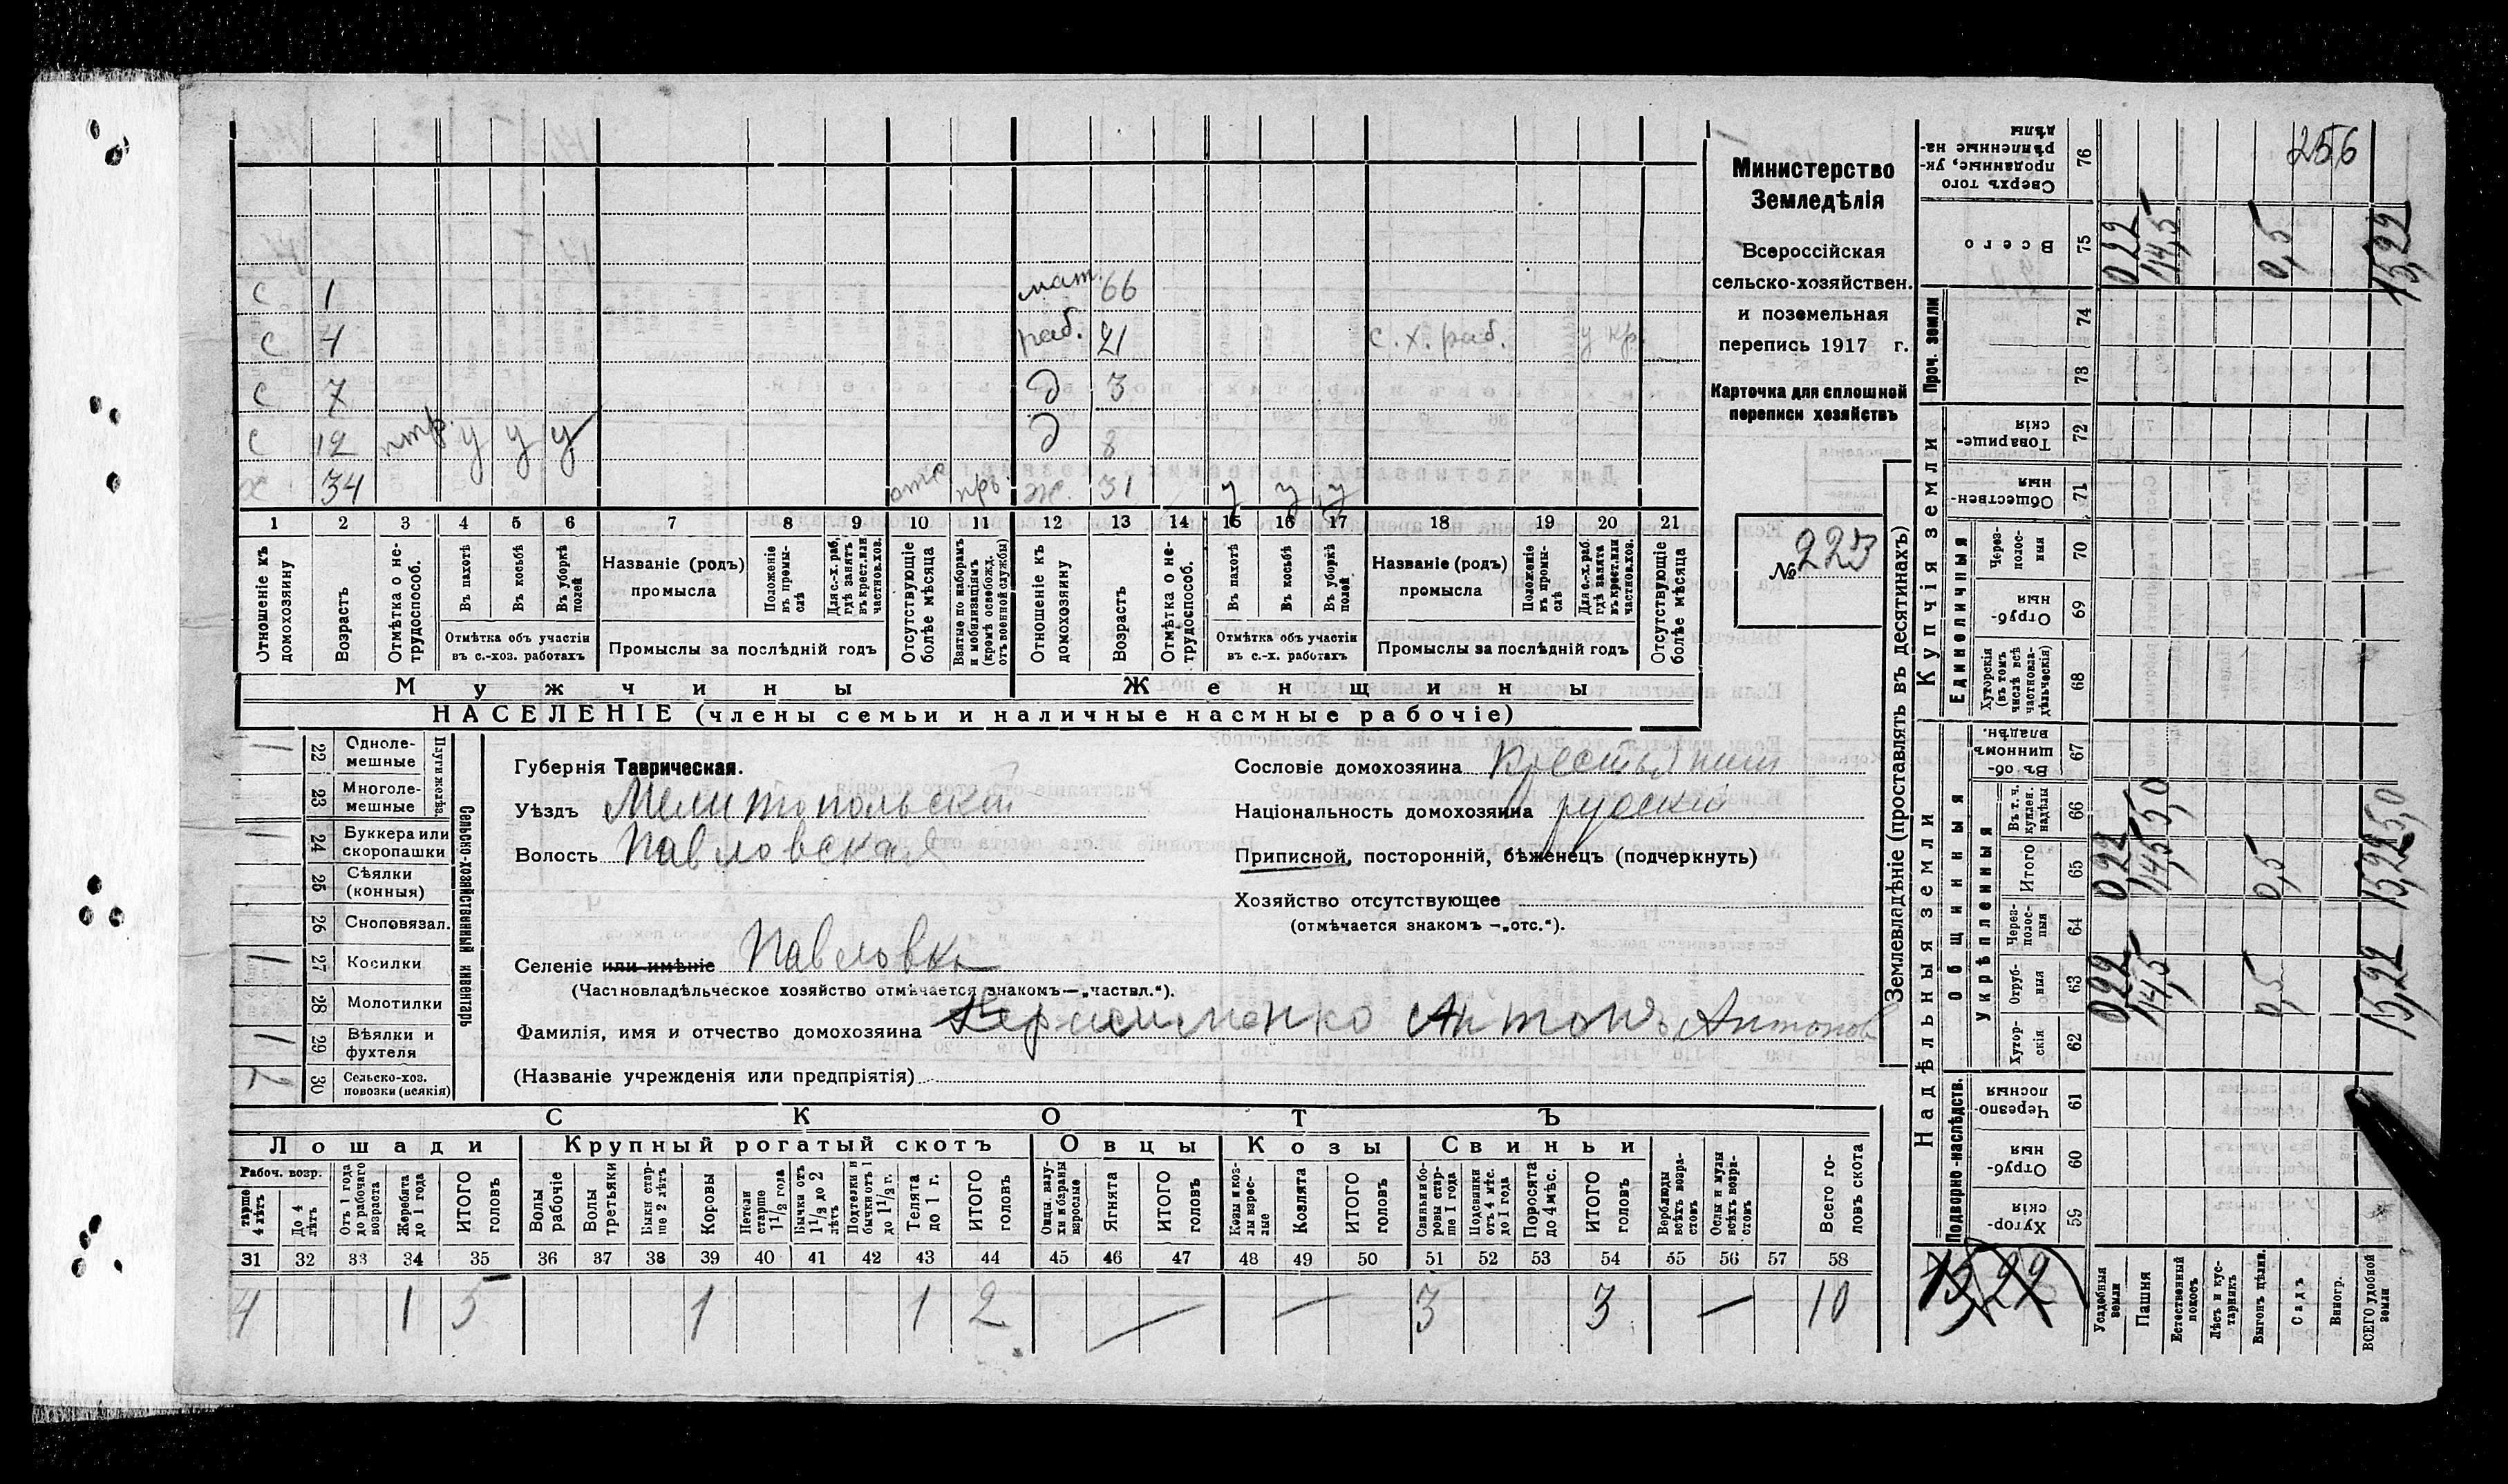 256
Министерство
Земледѣлія
Всероссійская
сельско-хозяйствен.
и поземельная
перепись 1917 г.
Карточка для сплошной
переписи хозяйствъ
№ 223
с 1 мат. 66
с 4 раб. 21 с. х. раб. у кр.
с 7 д 3
с 12 у у у д 8
х 34 отс пр. ж. 31 у у у
1 2 3 4 5 6 7 8 9 10 11 12 13 14 15 16 17 18 19 20 21
Отношеніе къ домохозяину
Возрастъ
Отмѣтка о нетрудоспособ.
Въ пахотѣ
Въ косьбѣ
Въ уборкѣ полей
Отмѣтка объ участіи
въ с.-хоз. работахъ
Названіе (родъ)
промысла
Положеніе въ промыслѣ
Для с.-х. раб. гдѣ занятъ въ крест. или частнов. хоз.
Промыслы за послѣдній годъ
Отсутствующіе болѣе мѣсяца
Взятые по наборамъ и мобилизаціямъ (кромѣ освобожд. отъ военной службы)
Отношеніе къ домохозяину
Возрастъ
Отмѣтка о нетрудоспособ.
Въ пахотѣ
Въ косьбѣ
Въ уборкѣ полей
Отмѣтка объ участіи
въ с.-х. работахъ
Названіе (родъ)
промысла
Положеніе въ промыслѣ
Для с.-х. раб. гдѣ занята въ крест. или частнов. хоз.
Промыслы за послѣдній годъ
Отсутствующіе болѣе мѣсяца
Мужчины Женщины
НАСЕЛЕНІЕ (члены семьи и наличные насмные рабочіе)
Сельско-хозяйственный инвентарь
1 22 Однолемешные
23 Многолемешные
1 24 Буккера или скоропашки
25 Сѣялки (конныя)
26 Сноповязал.
1 27 Косилки
28 Молотилки
1 29 Вѣялки и фухтеля
30 Сельско-хоз. повозки (всякія)
Губернія Таврическая.
Уѣздъ Мелитопольскій
Волость Павловская
Селеніе или имѣніе Павловка
(Частновладѣльческое хозяйство отмѣчается знакомъ—„частвл.“).
Фамилія, имя и отчество домохозяина Герасименко Антонъ Антонов
(Названіе учрежденія или предпріятія)
Сословіе домохозяина Крестьянин
Національность домохозяина русскій
Приписной, посторонній, бѣженецъ (подчеркнуть)
Хозяйство отсутствующее
(отмѣчается знакомъ —„отс.“).
СКОТЪ
Лошади Крупный рогатый скотъ Овцы Козы Свиньи
Рабоч. возр.
тарше 4 лѣтъ
До 4 лѣтъ
Отъ 1 года до рабочаго возраста
Жеребята до 1 года
ИТОГО головъ
Волы рабочіе
Волы третьяки
Быки старше 2 лѣтъ
Коровы
Нетели старше 1 1/2 года
Бычки отъ 1 1/2 до 2 лѣтъ
Подтелки и бычки отъ 1 до 1 1/2 г.
Телята до 1 г.
ИТОГО головъ
Овцы, валухи и бараны взрослые
Ягнята
ИТОГО головъ
Козы и козлы взрослые
Козлята
ИТОГО головъ
Свиньи и боровы старше 1 года
Подсвинки отъ 4 мѣс. до 1 года
Поросята до 4 мѣс.
ИТОГО головъ
Верблюды всѣхъ возрастовъ
Ослы и мулы всѣхъ возрастовъ
Всего головъ скота
31 32 33 34 35 36 37 38 39 40 41 42 43 44 45 46 47 48 49 50 51 52 53 54 55 56 57 58
4 1 5 1 1 2 — — 3 3 — 10
Землевладѣніе (проставлять въ десятинахъ)
Надѣльныя земли
Купчія земли
Проч. земли
Подворно-наслѣдств.
Общинныя
Укрѣпленныя
Единоличныя
Сверхъ того проданные, укрѣпленные надѣлы 76
Всего 75 0,22 14,5 0,5 15,22
74
73
Товарищескія 72
Общественныя 71
Черезполосныя 70
Отрубныя 69
Хуторскія (въ томъ числѣ всѣ частновладѣльческія) 68
Въ общинномъ владѣн. 67
Въ т. ч. куплен. надѣлы 66
Итого 65 0,22 14,5 0,5 15,22
Черезполосныя 64
Отрубныя 63 0,22 14,5 0,5 15,22
Хуторскія 62
Черезполосныя 61
Отрубныя 60
Хуторскія 59
15,22
Усадебныя земли
Пашня
Естественный покосъ
Лѣсъ и кустарникъ
Выгонъ цѣлин.
Садъ
Виногр.
ВСЕГО удобной земли